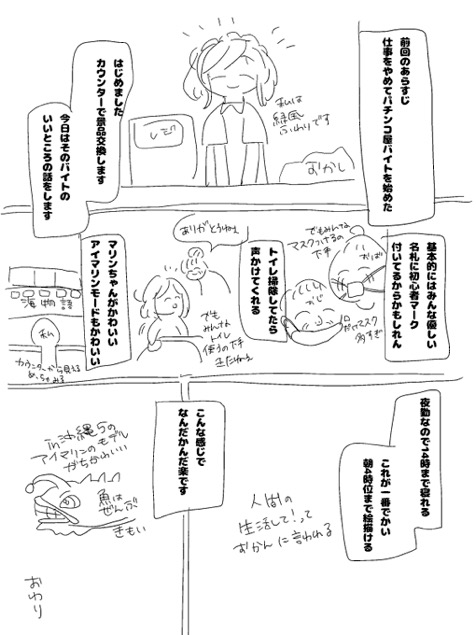 前回のあらすじ
仕事をやめてパチンコ屋バイトを始めた
私は
緑風
ふわりです
はじめました
カウンターで景品交換します
今日はそのバイトの
いいところの話をします
レジ
おかし
基本的にはみんな優しい
名札に初心者マーク
付いてるからかもしれん
でもみんな
マスクつけるの
下手
トイレ掃除してたら
声かけてくれる
ありがとうねぇ
でも
みんな
トイレ
使うの下手
きたねぇ
マリンちゃんがかわいい
アイマリンモードもかわいい
海物語
私
カウンターから見える
夜勤なので14時まで寝れる
これが一番でかい
朝4時位まで絵描ける
人間の
生活して！って
おかんに言われる
こんな感じで
なんだかんだ楽です
in沖縄5の
アイマリンのモデル
がちかわいい
魚は
ぜんぶ
きもい
おわり